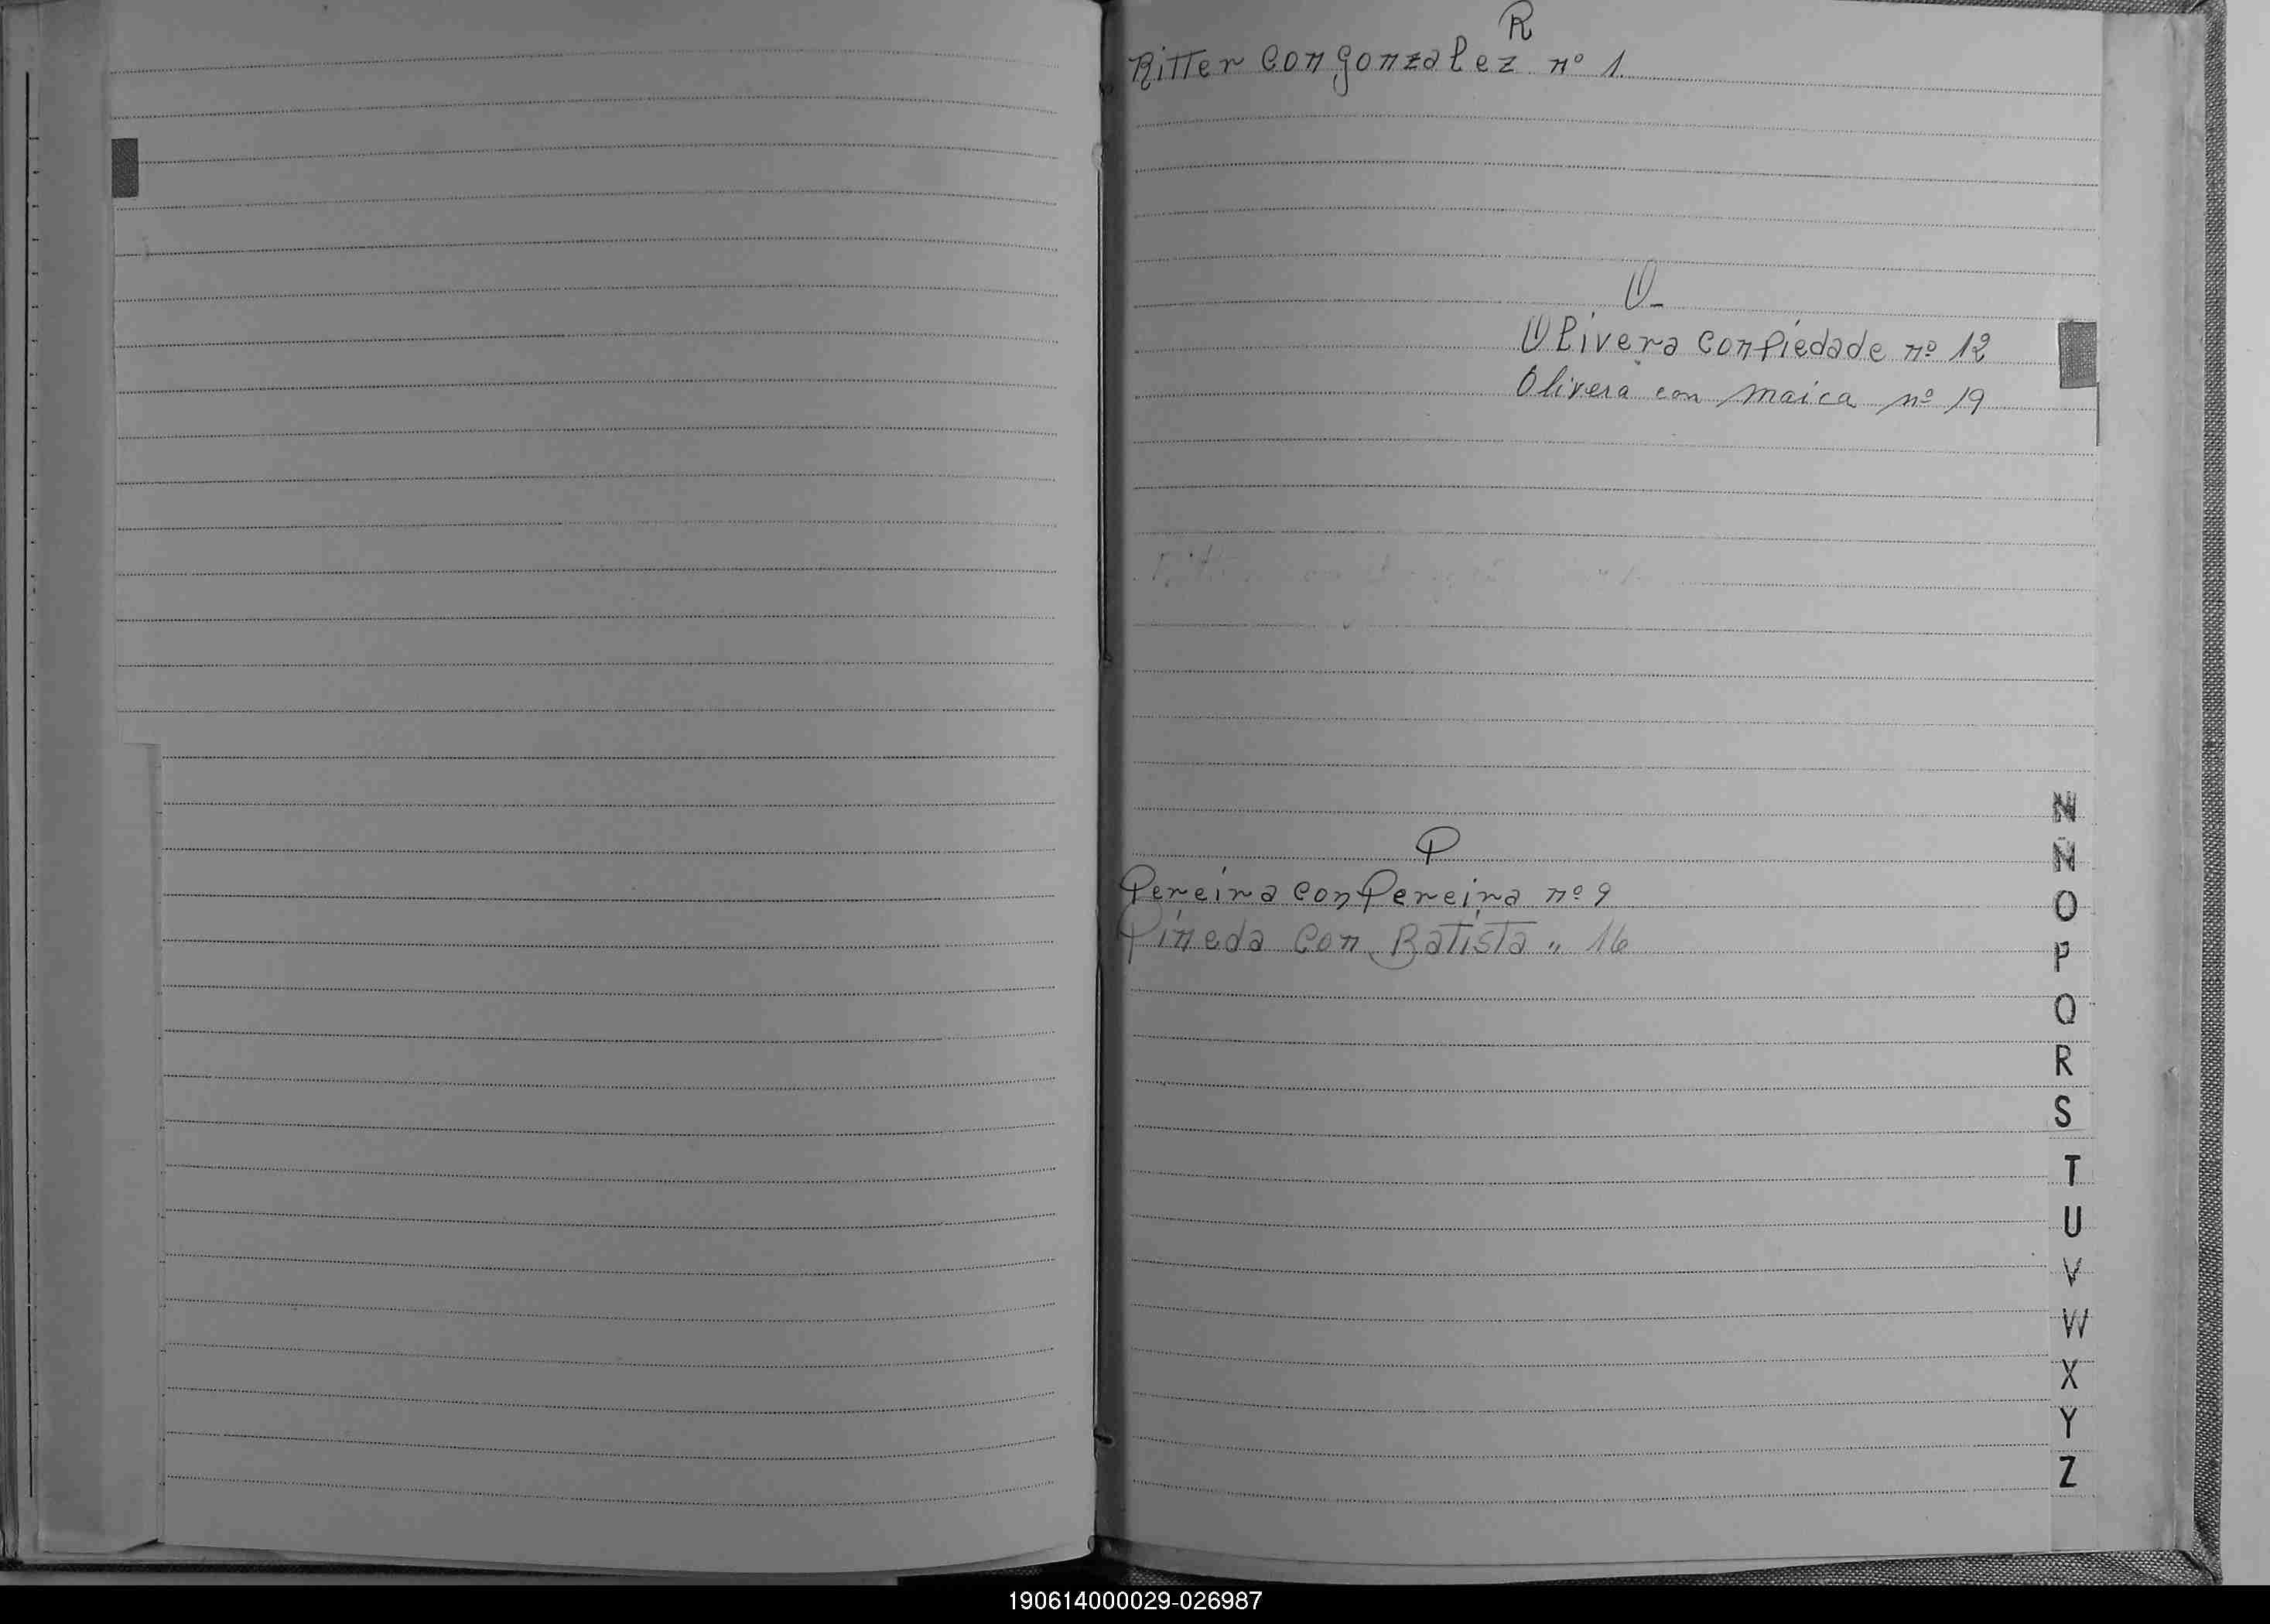 R
Ritter con gonzalez nº 1
O
Olivera con Piedade nº 12
Olivera con maica nº 19
P
Pereira con Pereira nº 9
Pineda con Batista " 16
N
Ñ
O
P
Q
R
S
T
U
V
W
X
Y
Z
190614000029-026987